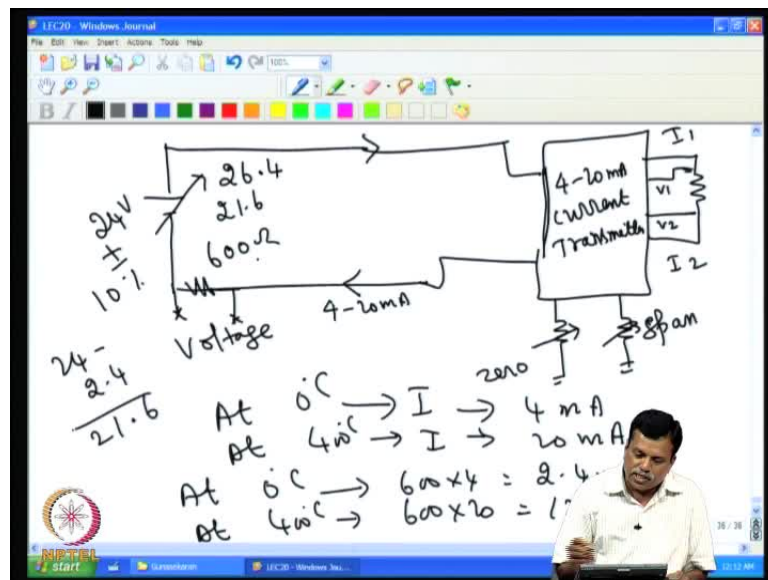 LEC20 - Windows Journal
File Edit View Insert Actions Tools Help
100%
B I
I1
26.4
4-20mA
V1
24V
21.6
Current
±
600Ω
Transmitter
V2
10%
I2
4-20mA
Voltage
zero
span
24-
2.4
21.6
At 0°C → I → 4 mA
At 400°C → I → 20 mA
At 0°C → 600×4 = 2.4
At 400°C → 600×20 = 1
36 / 36
NPTEL
start
Gunasekaran
LEC20 - Windows Jou...
12:12 AM